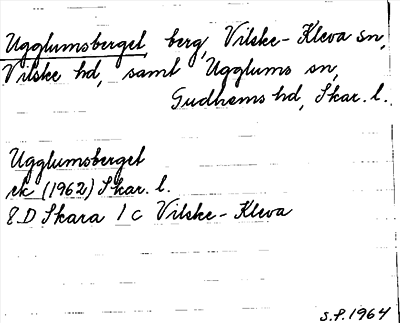 Ugglumsberget, berg, Vilske-Kleva sn,
Vilske hd, samt Ugglums sn,
Gudhems hd, Skar. l.
Ugglumsberget
ek (1962) Skar. l.
8.D Skara 1 c Vilske-Kleva
S.F. 1964